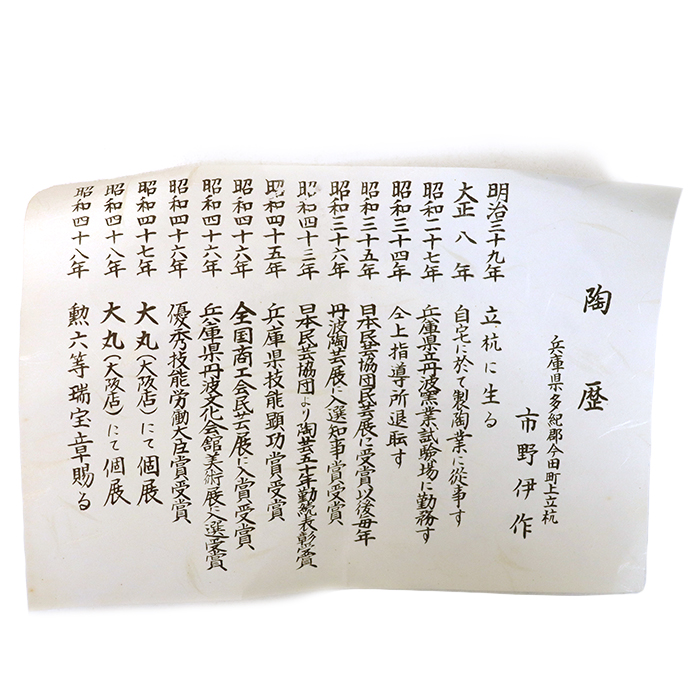 陶歴
兵庫県多紀郡今田町上立杭
市野伊作
明治三十九年 立杭に生る
大正八年 自宅に於て製陶業に従事す
昭和二十七年 兵庫県立丹波窯業試験場に勤務す
昭和三十四年 仝上指導所退転す
昭和三十五年 日本民芸協団民芸展に受賞以後毎年
昭和三十六年 丹波陶芸展に入選知事賞受賞
昭和四十三年 日本民芸協団より陶芸五十年勤続表彰賞
昭和四十五年 兵庫県技能顕功賞受賞
昭和四十六年 全国商工会民芸展に入賞受賞
昭和四十六年 兵庫県丹波文化会館美術展に入選受賞
昭和四十六年 優秀技能労働大臣賞受賞
昭和四十七年 大丸(大阪店)にて個展
昭和四十八年 大丸(大阪店)にて個展
昭和四十八年 勲六等瑞宝章賜る